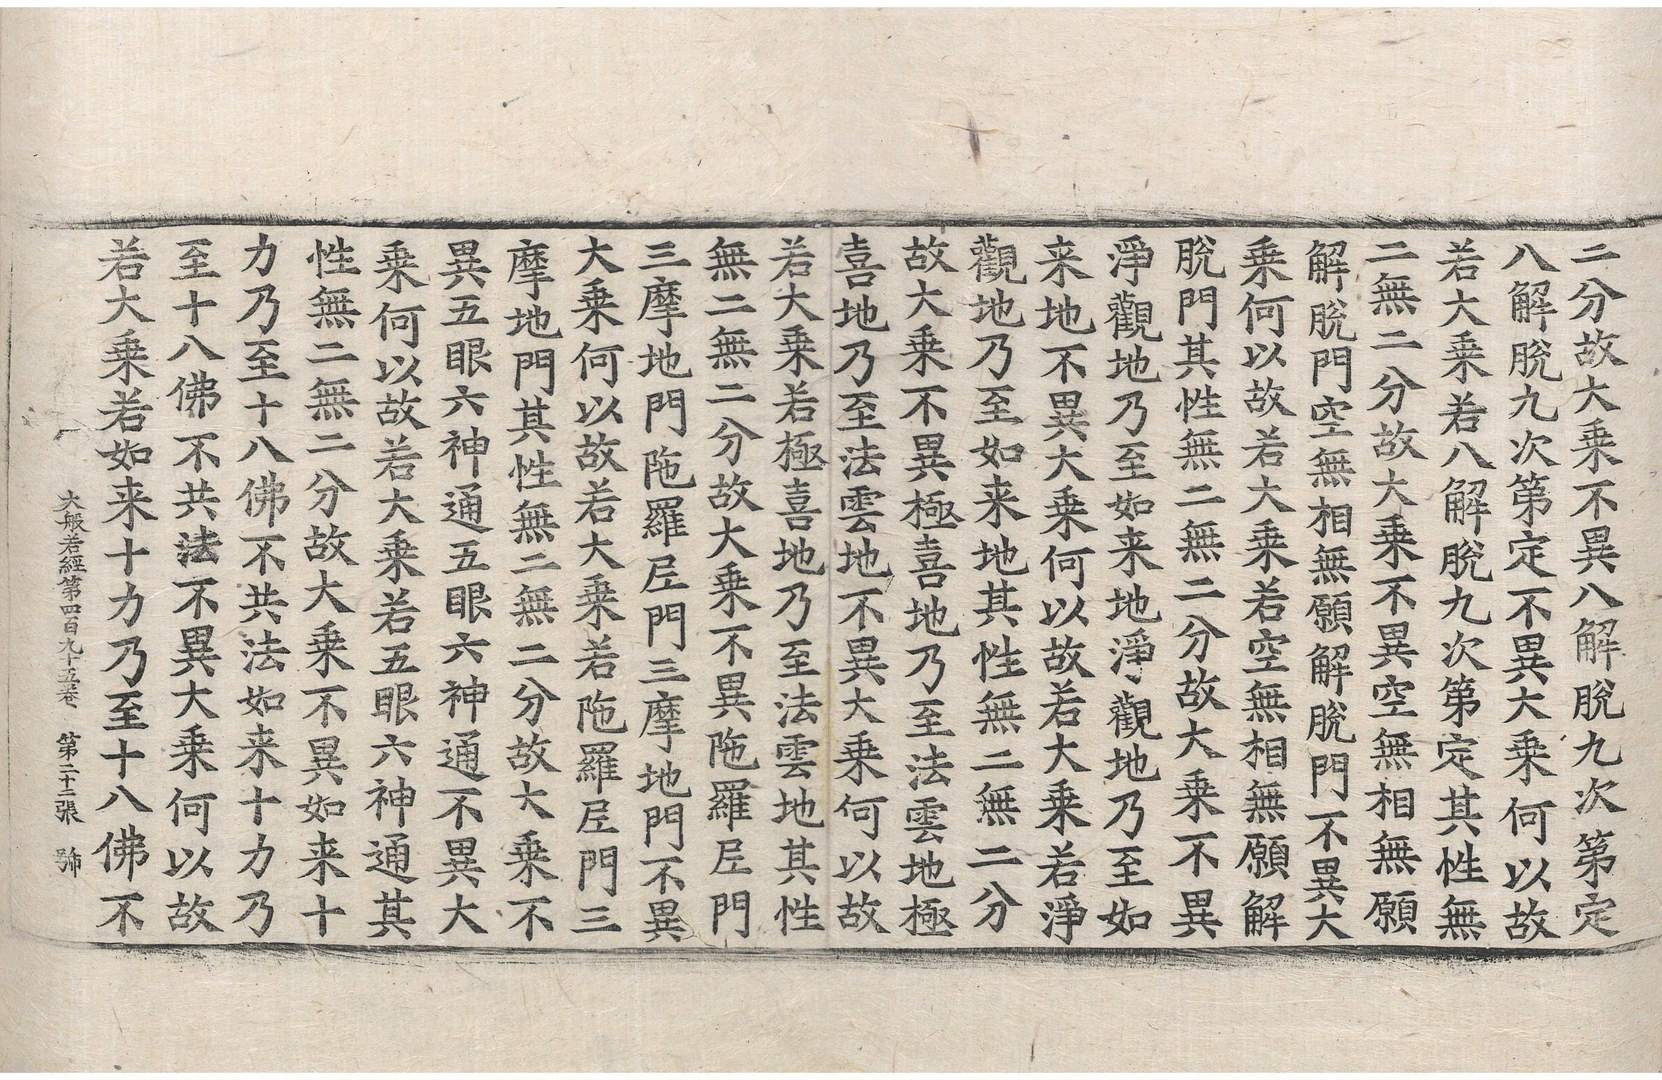 二分故大乗不異八解脫九次第定
八解脫九次第定不異大乗何以故
若大乗若八解脫九次第定其性無
二無二分故大乗不異空無相無願
解脫門空無相無願解脫門不異大
乗何以故若大乗若空無相無願解
脫門其性無二無二分故大乗不異
淨觀地乃至如来地淨觀地乃至如
来地不異大乗何以故若大乗若淨
觀地乃至如来地其性無二無二分
故大乗不異極喜地乃至法雲地極
喜地乃至法雲地不異大乗何以故
若大乗若極喜地乃至法雲地其性
無二無二分故大乗不異陁羅尼門
三摩地門陁羅尼門三摩地門不異
大乗何以故若大乗若陁羅尼門三
摩地門其性無二無二分故大乗不
異五眼六神通五眼六神通不異大
乗何以故若大乗若五眼六神通其
性無二無二分故大乗不異如来十
力乃至十八佛不共法如来十力乃
至十八佛不共法不異大乗何以故
若大乗若如来十力乃至十八佛不
大般若經第四百九十五卷 第二十二張 號